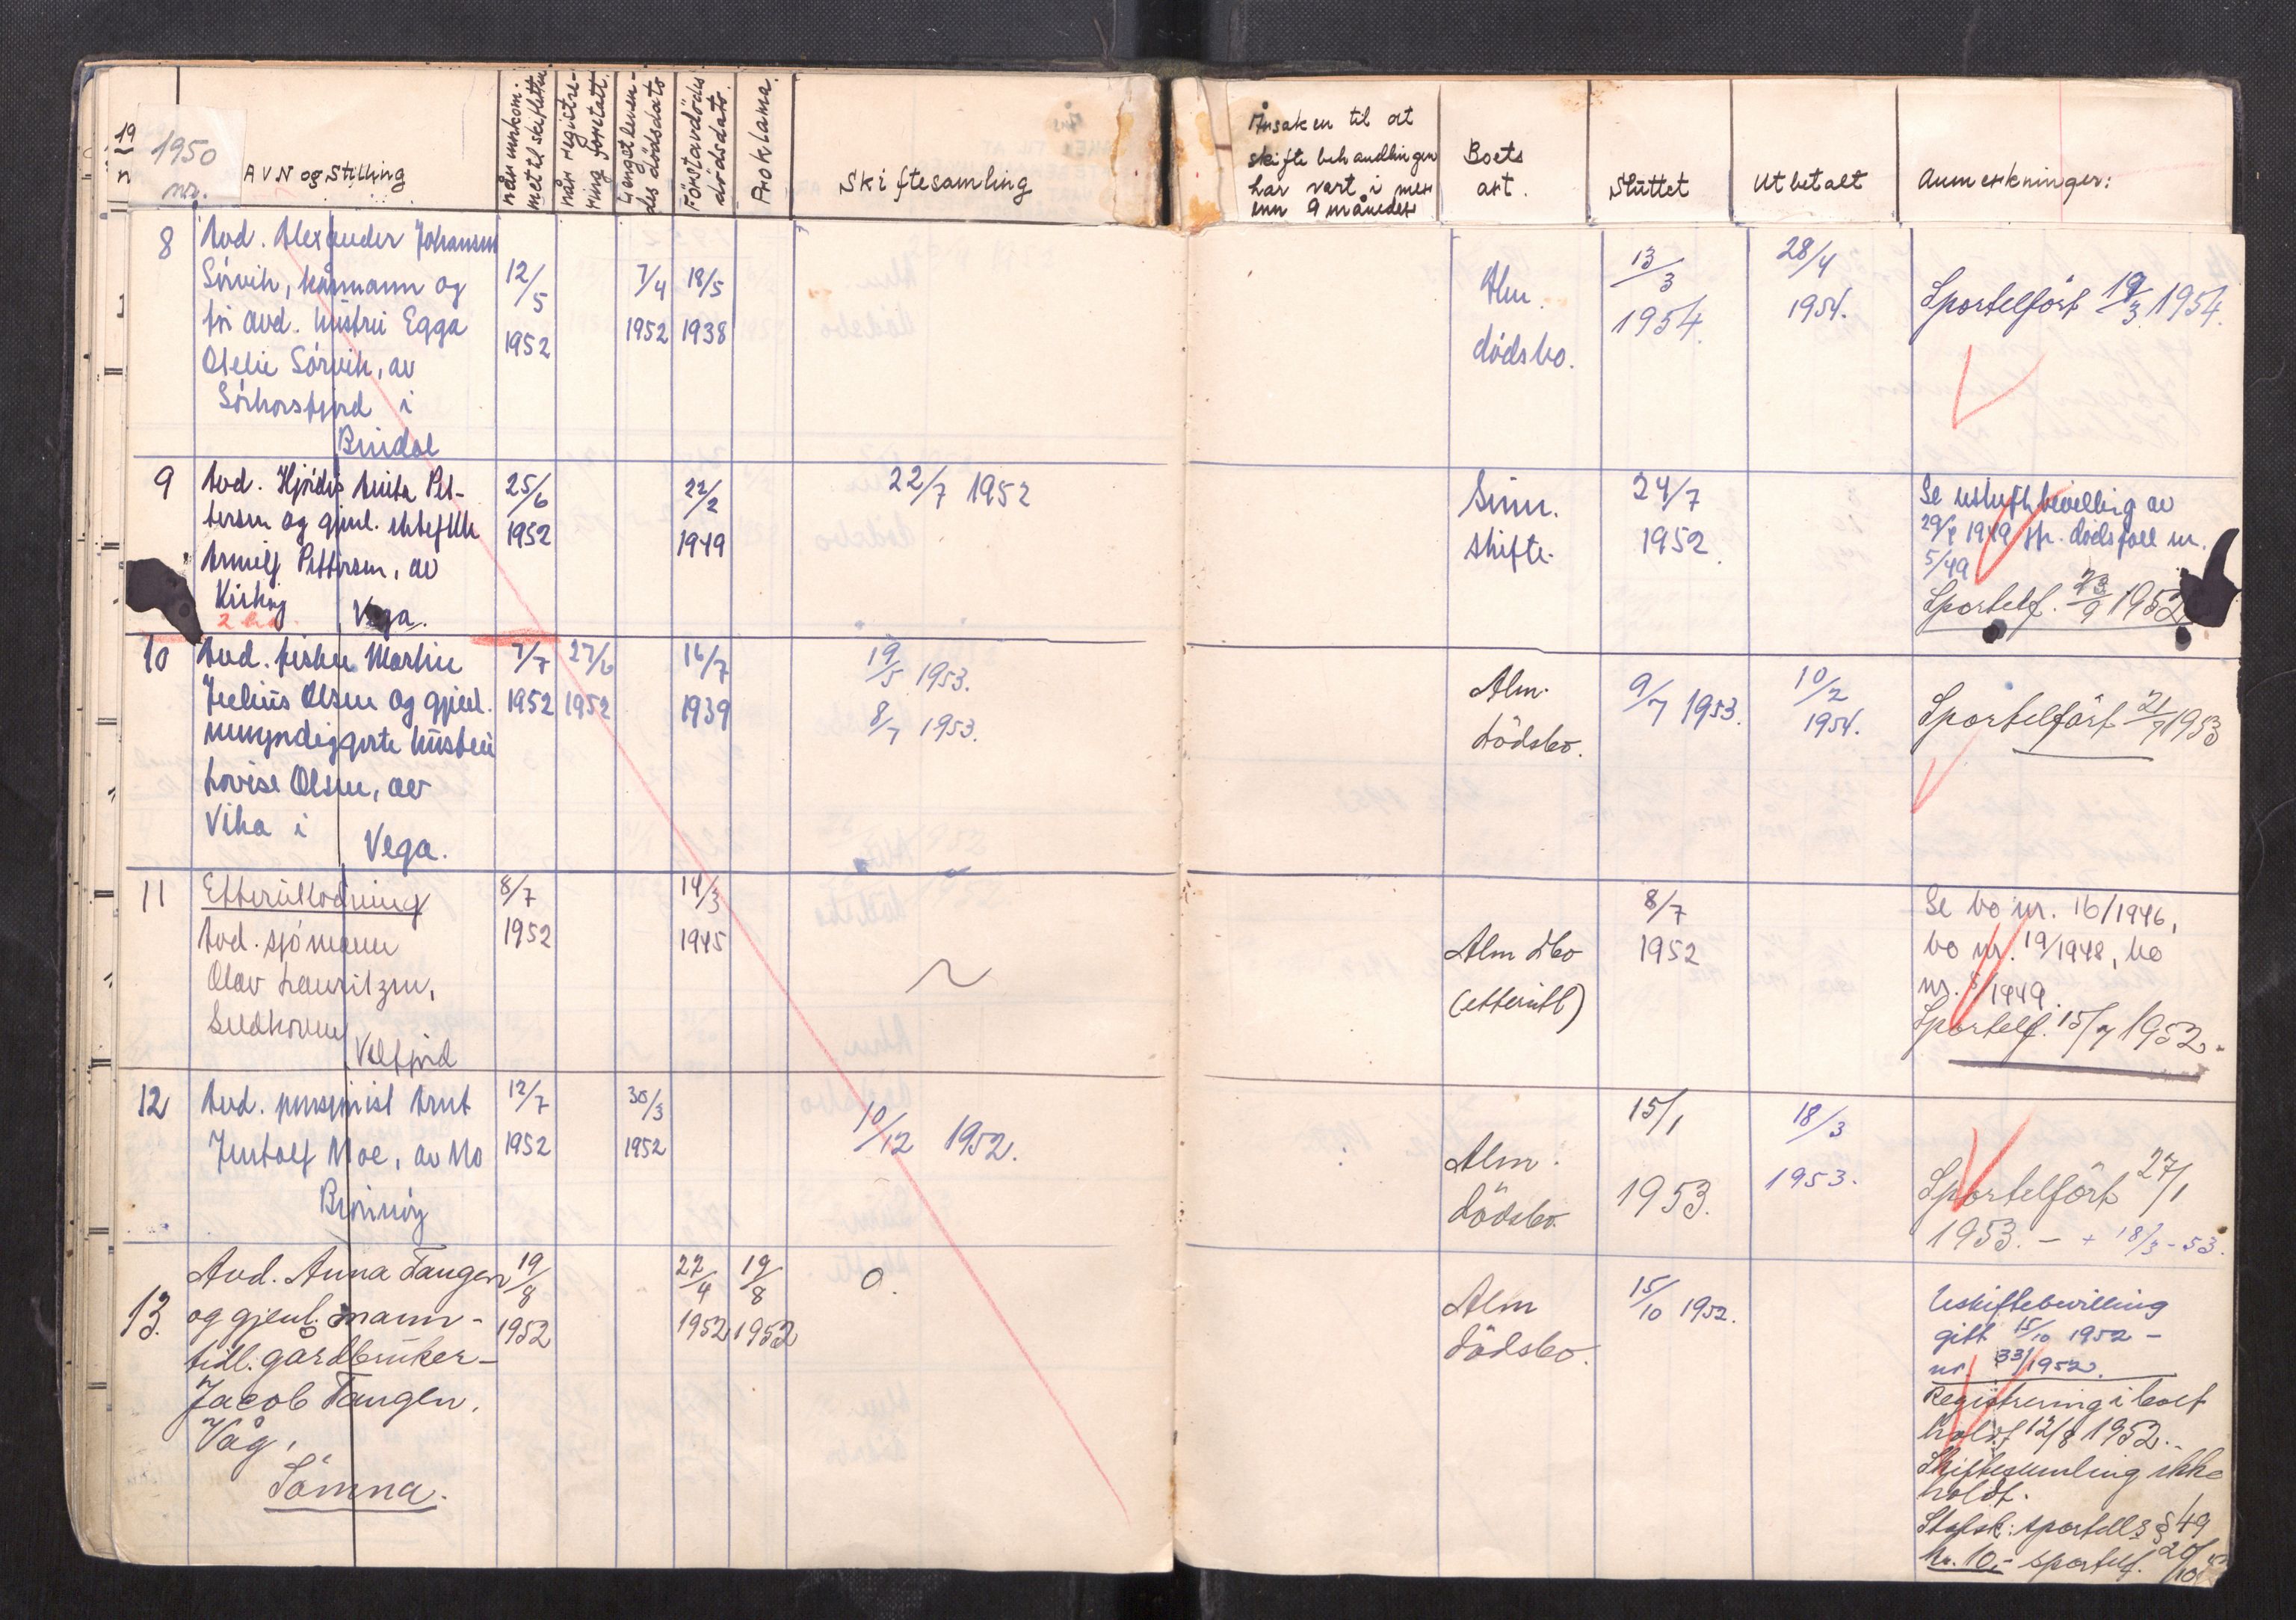 19
n
1950
nr.
AVN og Stilling
når innkom-
met til skifteretten
når registre-
ring foretatt.
Lengstleven-
des dødsdato
Förstavdödes
dödsdato.
Proklama.
Skiftesamling
Årsaken til at
skiftebehandlingen
har vart i mer
enn 9 måneder
Boets
art.
Sluttet
Utbetalt
Anmerkninger:
8
Avd. Alexander Johansen
Sørvik, kårmann og
før avd. hustru Egga
Oselie Sørvik, av
Sørhorsfjord i
Bindal
12/5
1952
7/4
1952
18/5
1938
Alm.
dødsbo.
13/3
1954.
28/4
1954.
Sportelfört 19/3 1954.
9
Avd. Hjördis Anita Pet-
tersen og gjenl. ektefelle
Arnulf Pettersen, av
Kirkøy
Vega.
25/6
1952
22/2
1949
22/7 1952
Sum.
skifte.
24/7
1952.
Se uskiftebevilling av
29/4 1949 jfr. dødsfall nr.
5/49
Sportelf. 23/9 1952
10
Avd. fisker Martin
Julius Olsen og gjenl.
umyndiggjorte hustru
Lovise Olsen, av
Vika i
Vega.
7/7
1952
27/6
1952
16/7
1939
19/5 1953.
8/7 1953.
Alm.
dödsbo.
9/7 1953.
10/2
1954.
Sportelfört 21/7 1953
11
Etterutlodning
Avd. sjómann
Olav Lauritzen,
Velfjord
8/7
1952
14/3
1945
Alm dbo
(etterutl)
8/7
1952
Se bo nr. 16/1946,
bo nr. 19/1948, bo
nr. 8/1949.
Sportelf. 15/7 1952.
12
Avd. pensjonist Arnt
Jentolf Moe, av Mo
Brønnøy
12/7
1952
30/3
1952
10/12 1952.
Alm.
dödsbo.
15/1
1953.
18/3
1953.
Sportelfört 27/1
1953. - + 18/3-53.
13.
Avd. Anna Tangen
og gjenl. mann-
tidl. gårdbruker-
Jacob Tangen,
Våg,
Sömna.
19/8
1952
22/4
1952
19/8
1952
0.
Alm
dödsbo.
15/10 1952.
Uskiftebevilling
gitt 15/10 1952 -
nr 33/1952.
Registrering i boet
holdt 12/8 1952.
Skiftesamling ikke
holdt.
Statsk: sportell § 49
kr. 10,- sportelf. 20/10